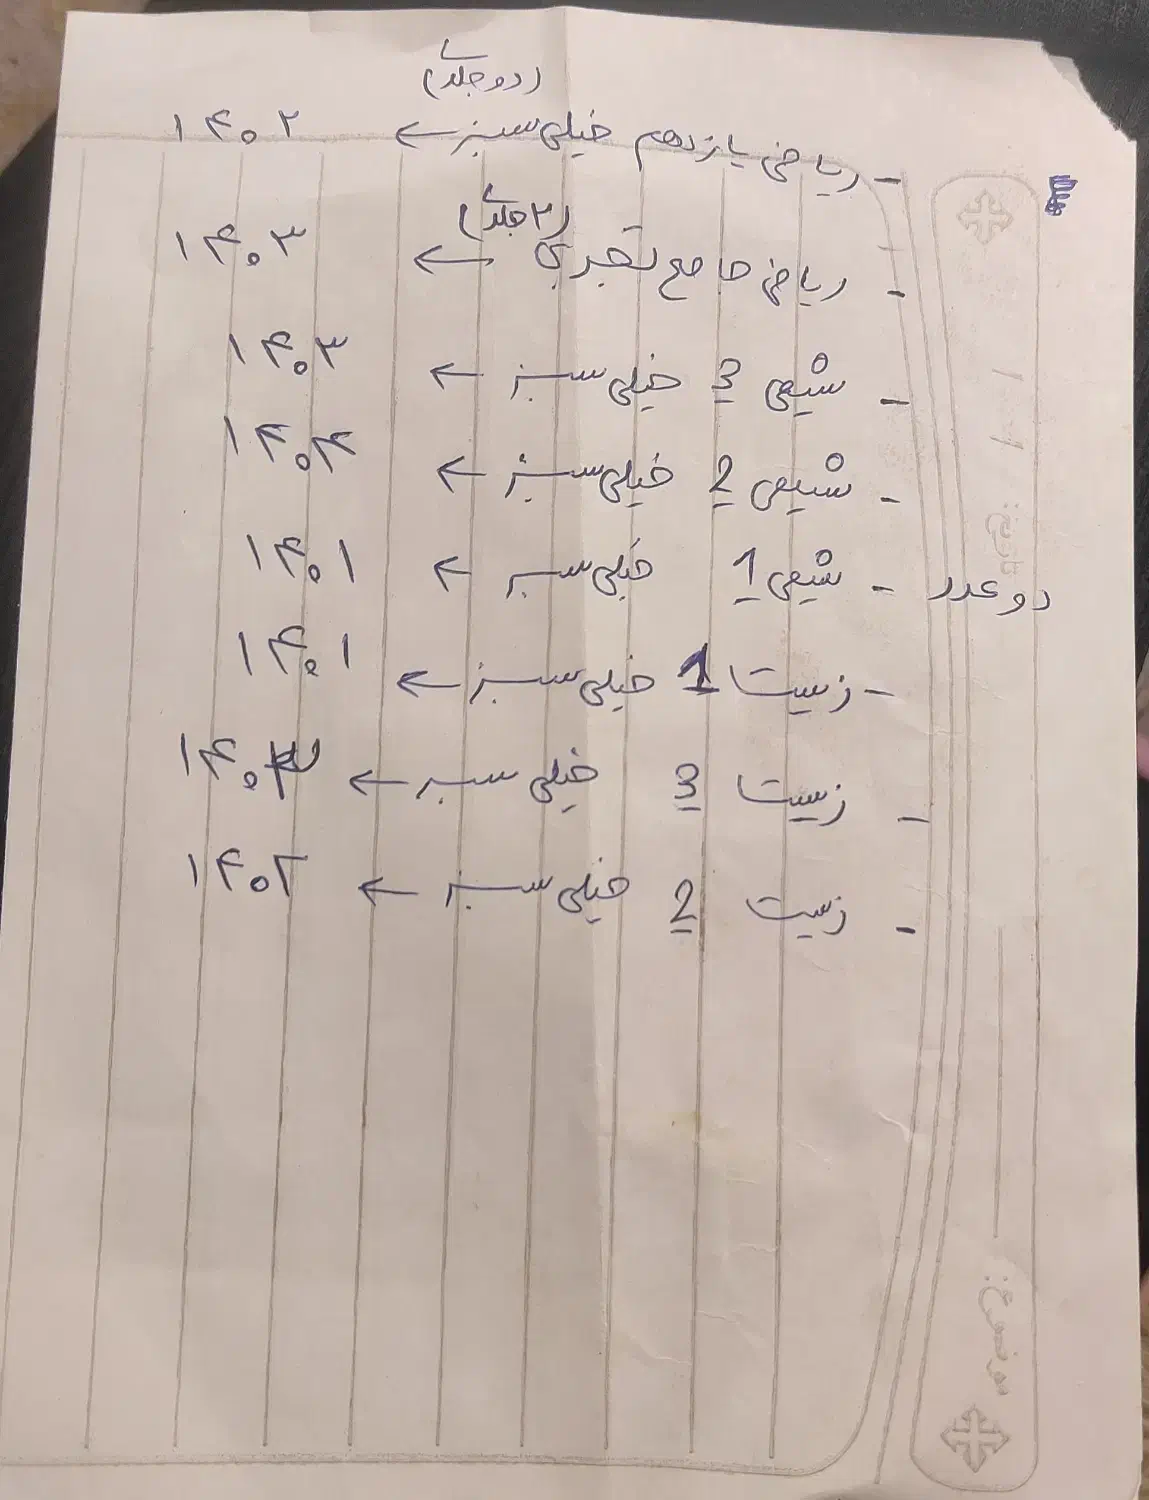 (دو جلدی)
- ریاضی یازدهم خیلی سبز ← ۱۴۰۲
(۲ جلدی)
- ریاضی جامع تجربی ← ۱۴۰۳
- شیمی 3 خیلی سبز ← ۱۴۰۳
- شیمی 2 خیلی سبز ← ۱۴۰۴
دو عدد - شیمی 1 خیلی سبز ← ۱۴۰۱
- زیست 1 خیلی سبز ← ۱۴۰۱
- زیست 3 خیلی سبز ←
- زیست 2 خیلی سبز ← ۱۴۰۲
تاریخ: / /
موضوع: